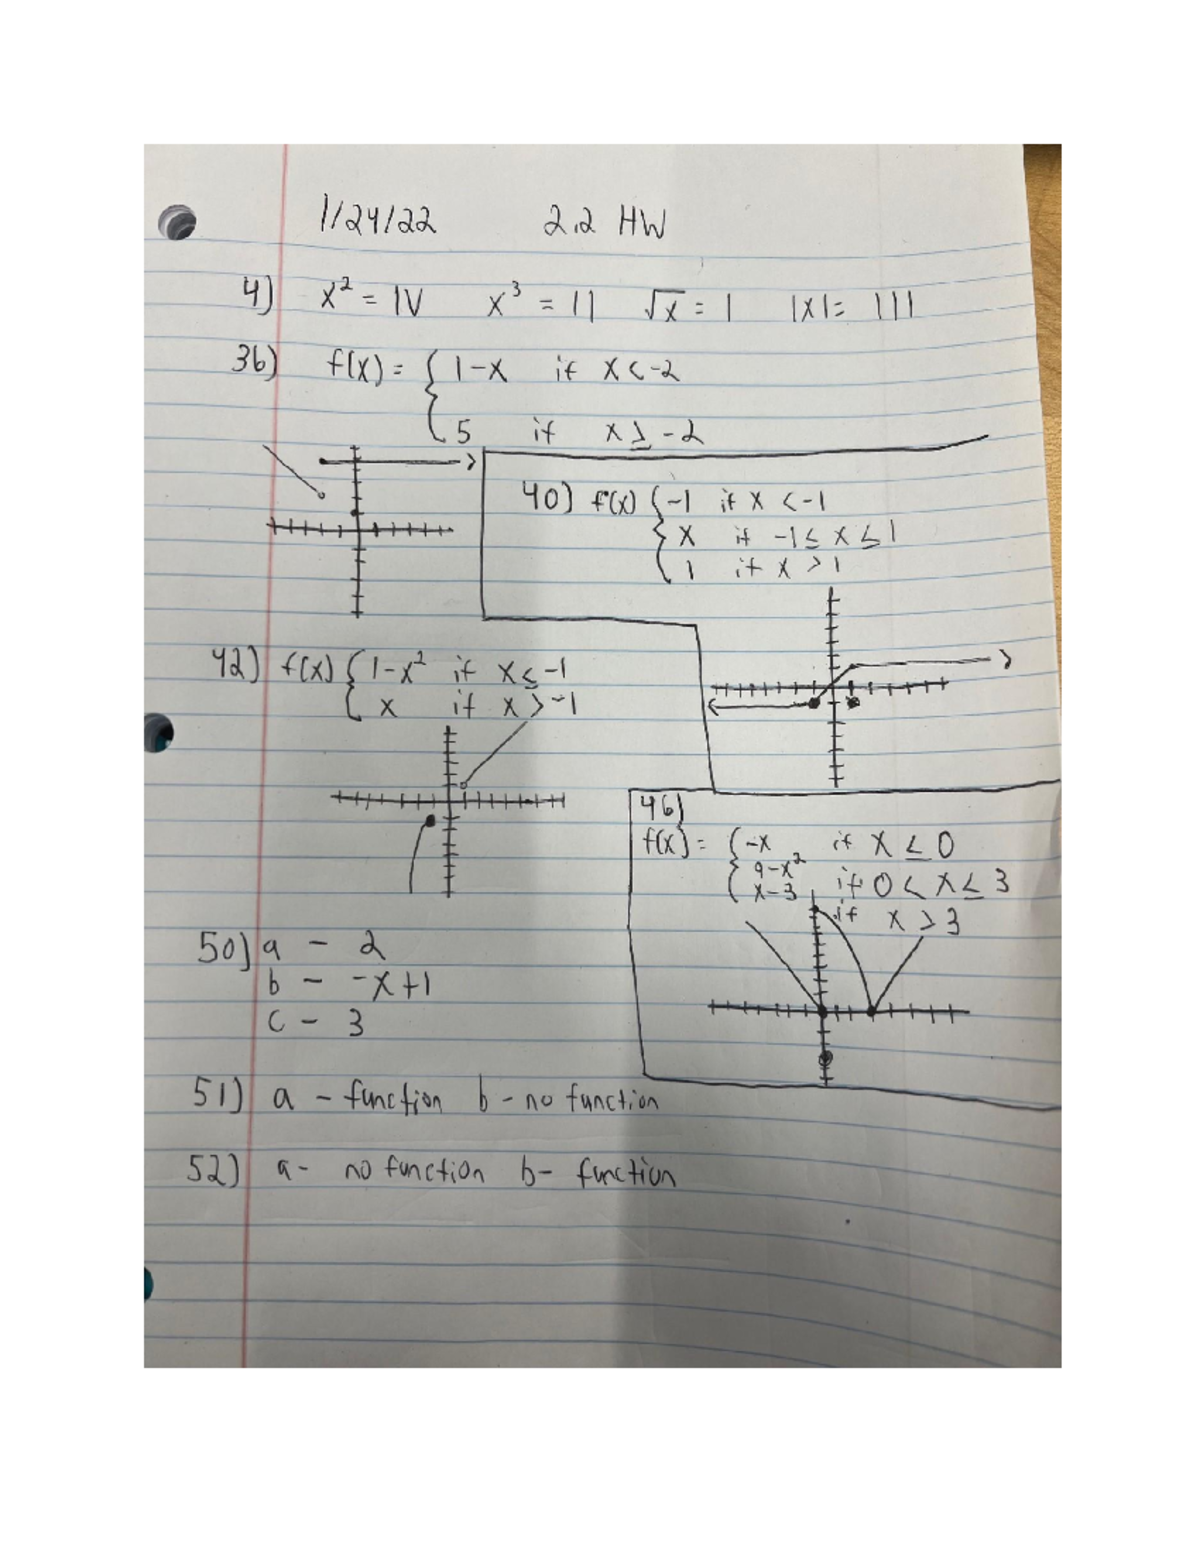 1/24/22 2.2 HW
4) x² = IV x³ = II √x = I |x| = III
36) f(x) = { 1-x if x < -2
5 if x ≥ -2
40) f(x) { -1 if x < -1
x if -1 ≤ x ≤ 1
1 if x > 1
42) f(x) { 1-x² if x ≤ -1
x if x > -1
46)
f(x) = { -x if x ≤ 0
9-x² if 0 < x ≤ 3
x-3 if x > 3
50) a - 2
b - -x+1
c - 3
51) a - function b - no function
52) a- no function b- function